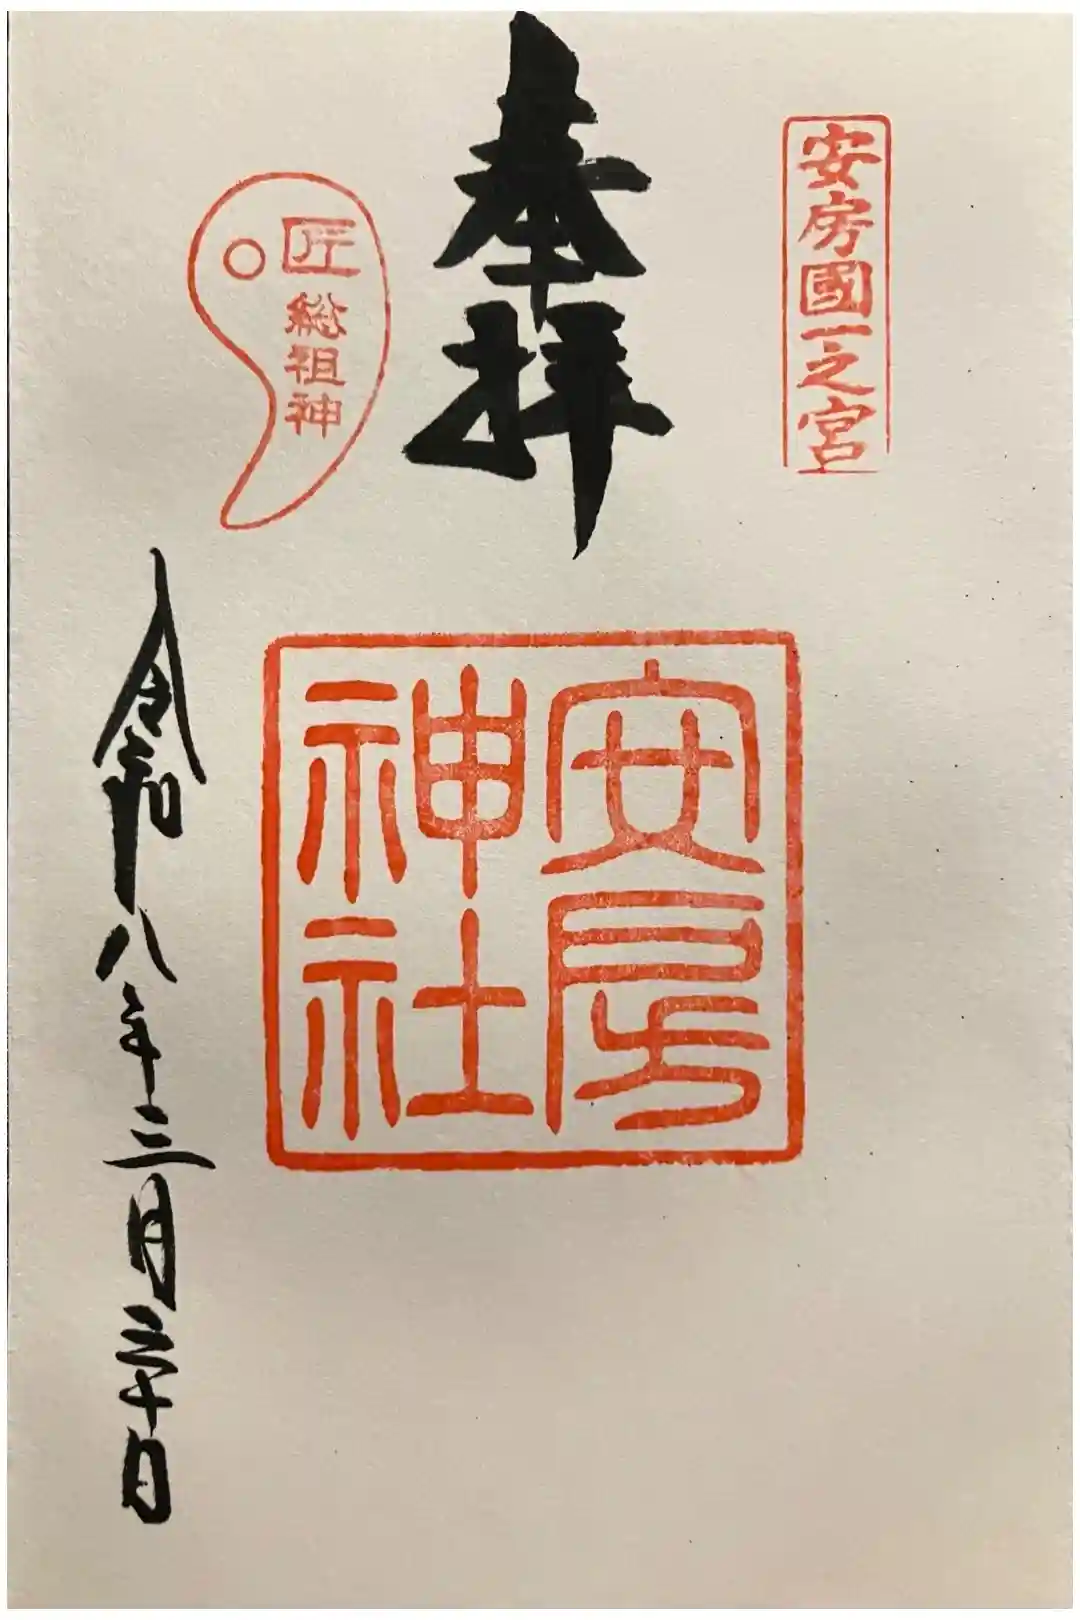 安房國一之宮
奉拝
安房
神社
匠総祖神
令和八年三月三十日